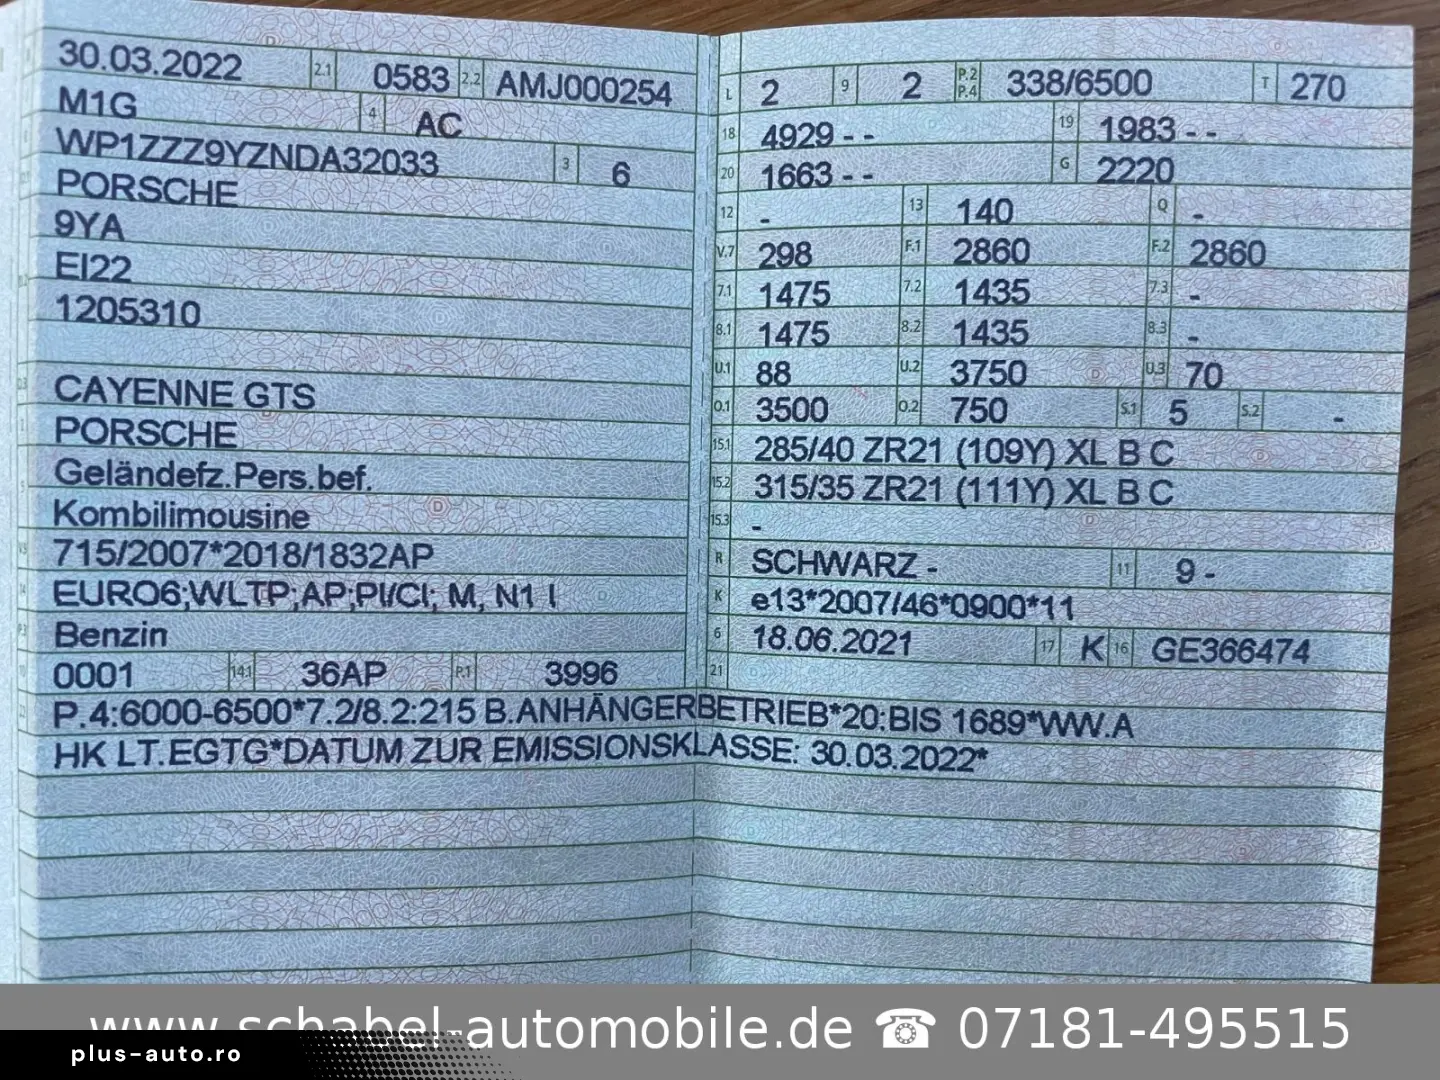 30.03.2022 2.1 0583 2.2 AMJ000254
M1G 4 AC
WP1ZZZ9YZNDA32033 3 6
PORSCHE
9YA
EI22
1205310
CAYENNE GTS
PORSCHE
Geländefz.Pers.bef.
Kombilimousine
715/2007*2018/1832AP
EURO6;WLTP;AP;PI/CI; M, N1 I
Benzin
0001 14.1 36AP P.1 3996
L 2 9 2 P.2 P.4 338/6500 T 270
18 4929 - - 19 1983 - -
20 1663 - - G 2220
12 - 13 140 Q -
V.7 298 F.1 2860 F.2 2860
7.1 1475 7.2 1435 7.3 -
8.1 1475 8.2 1435 8.3 -
U.1 88 U.2 3750 U.3 70
O.1 3500 O.2 750 S.1 5 S.2 -
15.1 285/40 ZR21 (109Y) XL B C
15.2 315/35 ZR21 (111Y) XL B C
15.3 -
R SCHWARZ - 11 9 -
K e13*2007/46*0900*11
6 18.06.2021 17 K 16 GE366474
21
P.4:6000-6500*7.2/8.2:215 B.ANHÄNGERBETRIEB*20:BIS 1689*WW.A
HK LT.EGTG*DATUM ZUR EMISSIONSKLASSE: 30.03.2022*
www.schabel-automobile.de ☎ 07181-495515
plus-auto.ro